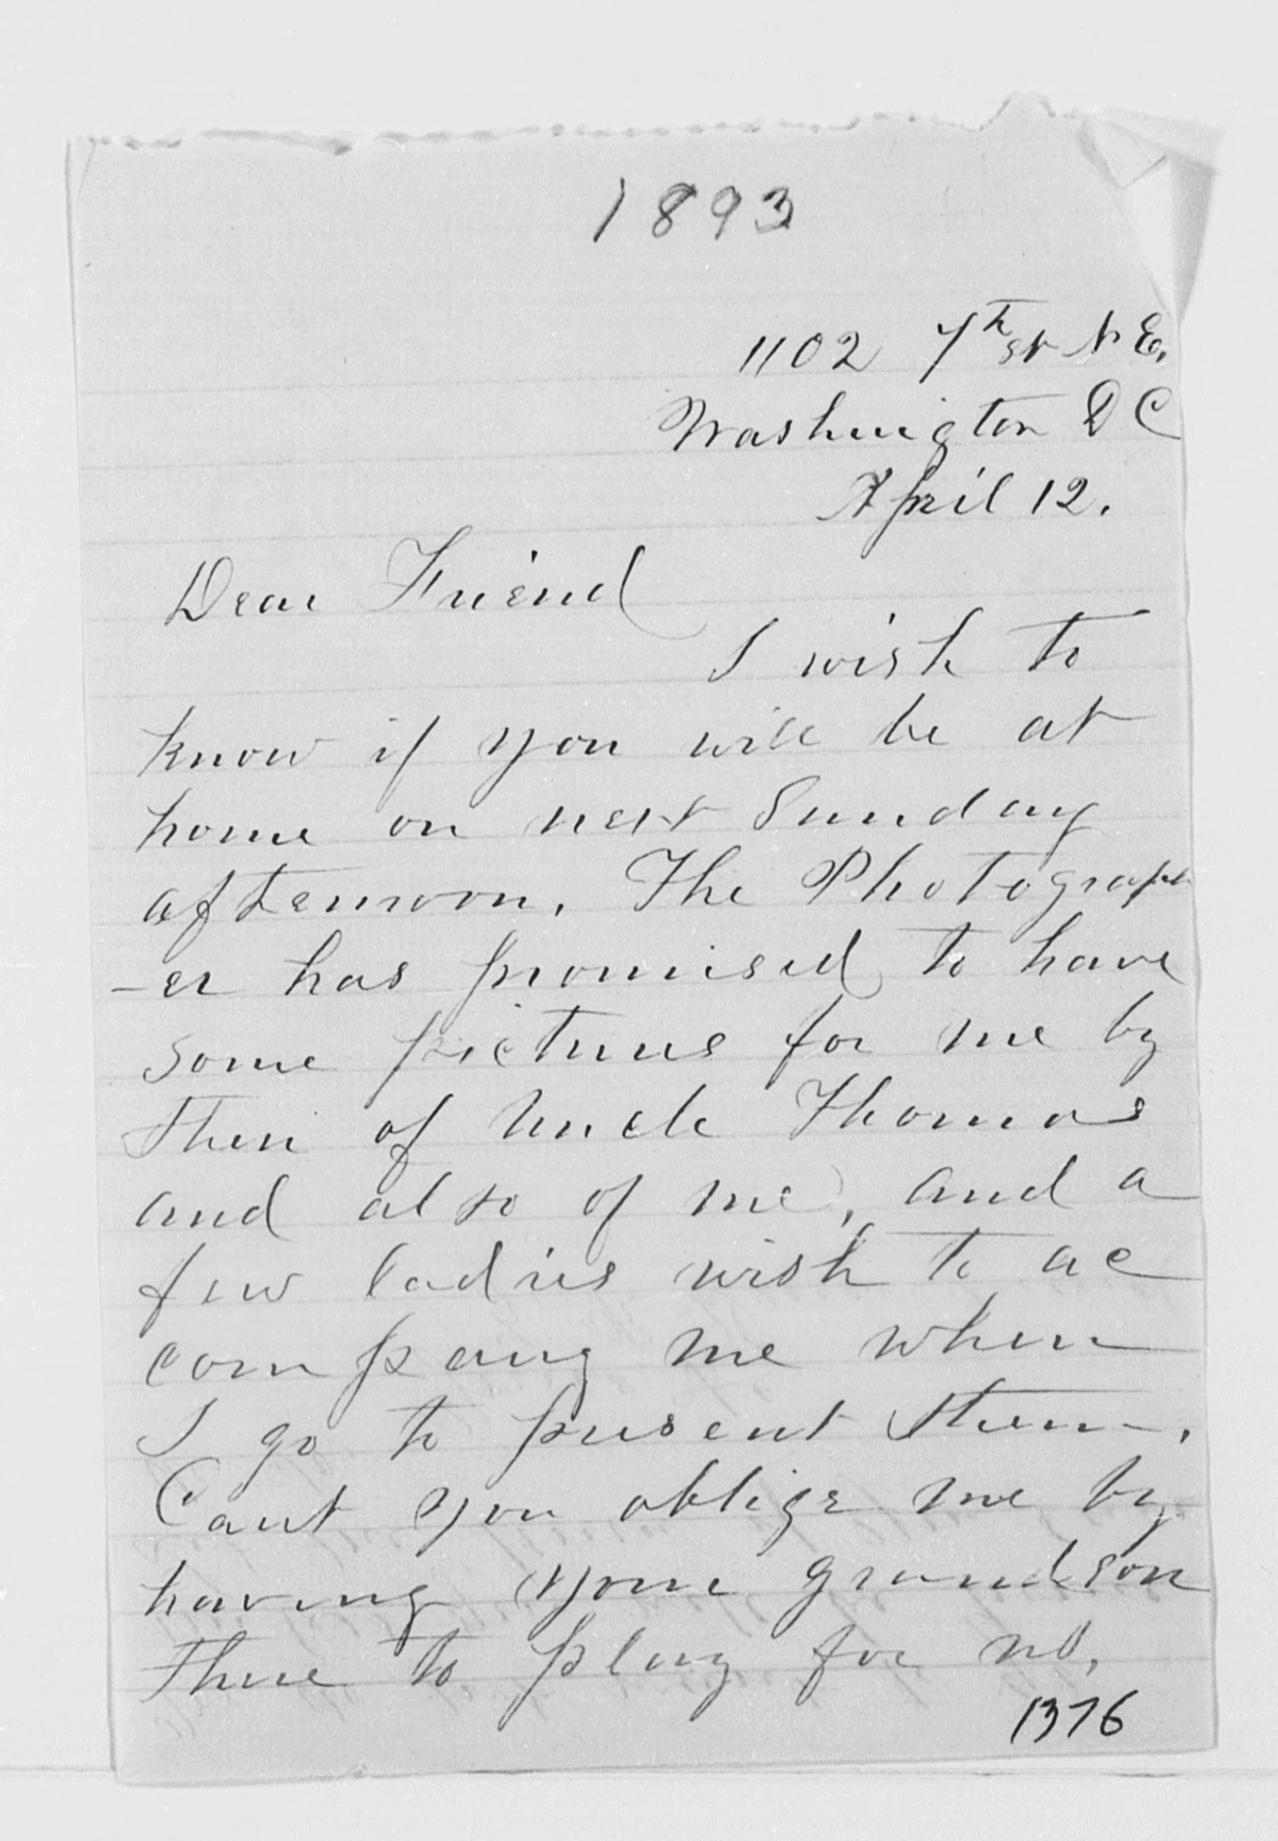 1893
1102 7th st N E.
Washington D C
April 12.
Dear Friend
I wish to
know if you will be at
home on next Sunday
afternoon. The Photograph
-er has promised to have
some pictures for me by
then of Uncle Thomas
and also of me, and a
few ladies wish to ac
company me when
I go to present them.
Cant you oblige me by
having your grandson
there to play for us.
1376